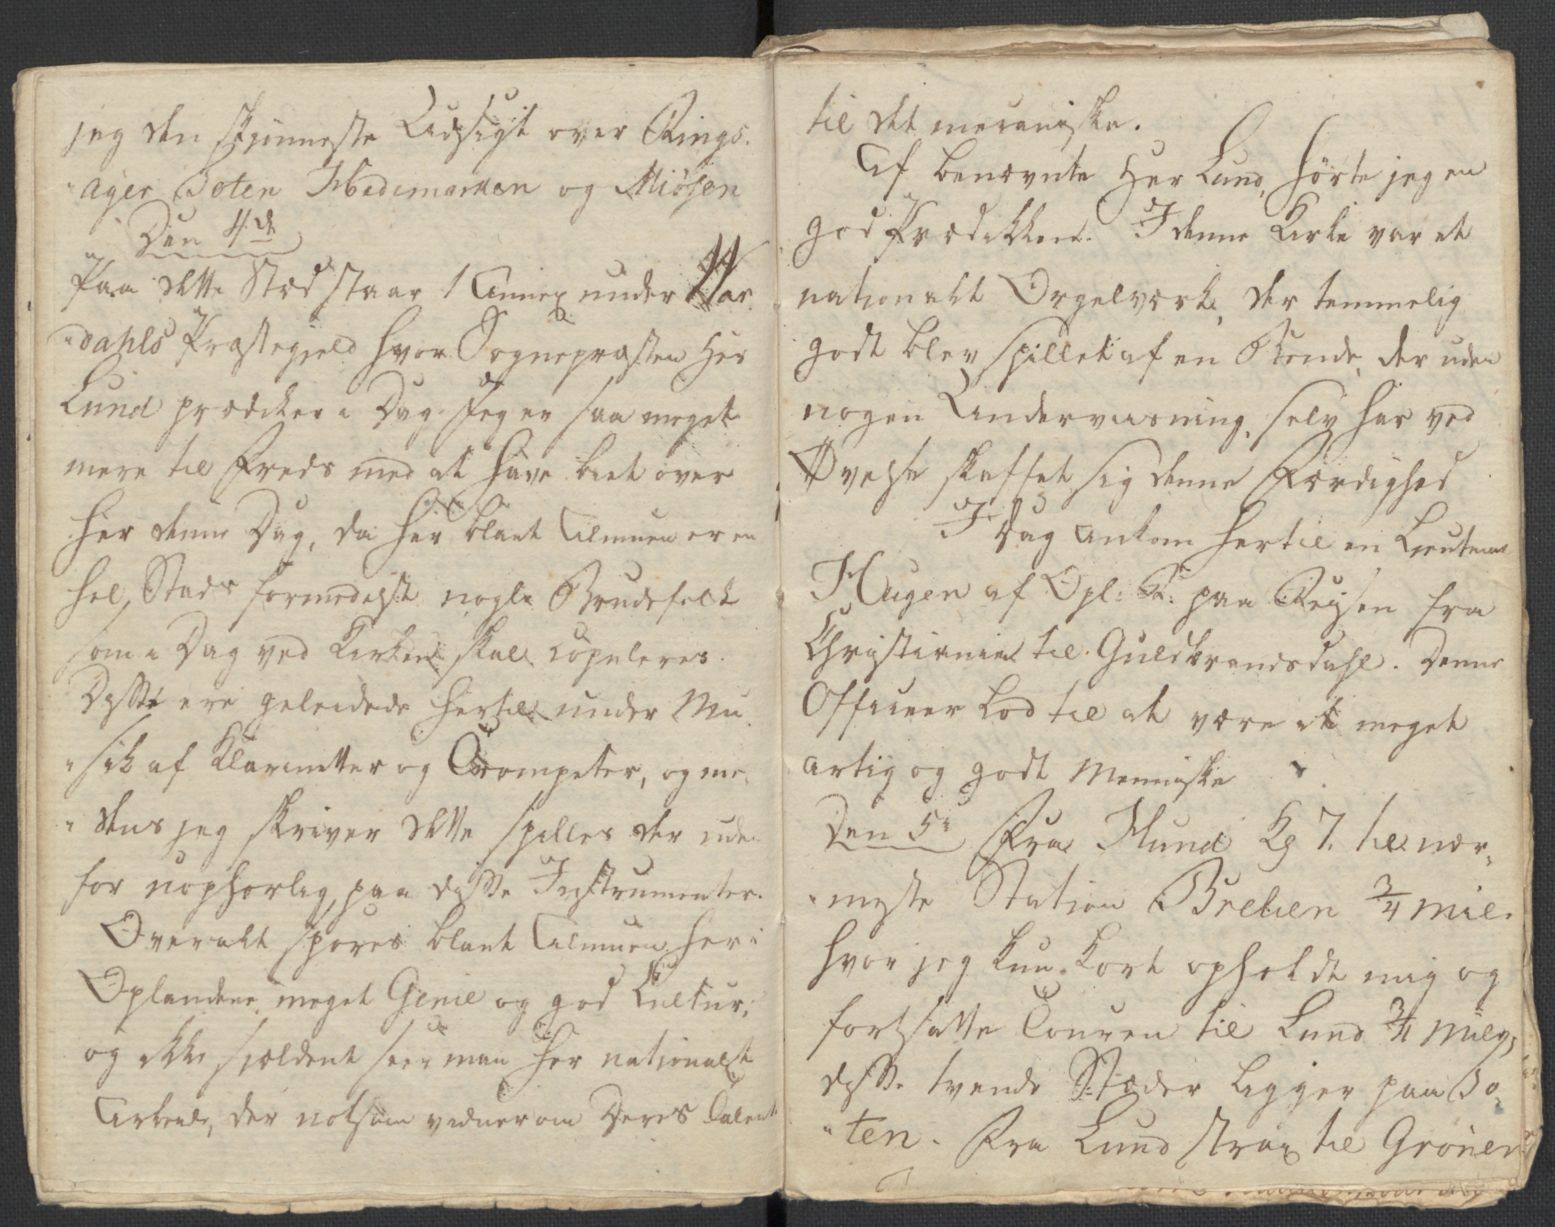 jeg den skjønneste Udsigt over Rings-
-ager Toten Hedemarken og Miøsen
Den 4de
Paa dette Stæd staar 1 Annex under War
-dahls Præstegield hvor Sognepræsten Her
Lund prædiker i Dag. Jeg er saa meget
mere til Freds med at have biet over
her denne Dag, da her blant Almuen er en
hel Stads formedelst nogle Brudefolk
som i Dag ved Kirken skal copuleres.
Disse ere geleidede hertil under Mu-
-sik af Klarinetter og Trompeter, og me-
-dens jeg skriver dette spilles der uden
for uophørlig, paa disse Instrumenter.
Overalt spores blant Almuen her i
Oplandene meget Genie og god Cultur;
og ikke sjældent seer man her nationalt
Arbeide, der noksom vidner om Deres Talent
til det mecaniske.
Af benævnte Her Lund, hørte jeg en
god Prædikken. I denne Kirke var et
nationalt Orgelværk, der temmelig
godt blev spillet af en Bonde, der uden
nogen Underviisning, selv har ved
Øvelse skaffet sig denne Færdighed
I Dag ankom hertil en Lieutenant
Haugen af Opl: R: paa Reisen fra
Christiania til Guldbrandsdahl. Denne
Officeer lod til at være et meget
artig og godt Menniske
Den 5te Fra Hund Kl 7. til nær-
-meste Station Brelien 3/4 Mil.
hvor jeg kun kort opholdt mig og
fortsatte Touren til Lund 3/4 Mil,
disse tvende Stæder ligger paa To-
-ten. Fra Lund strax til Grøner